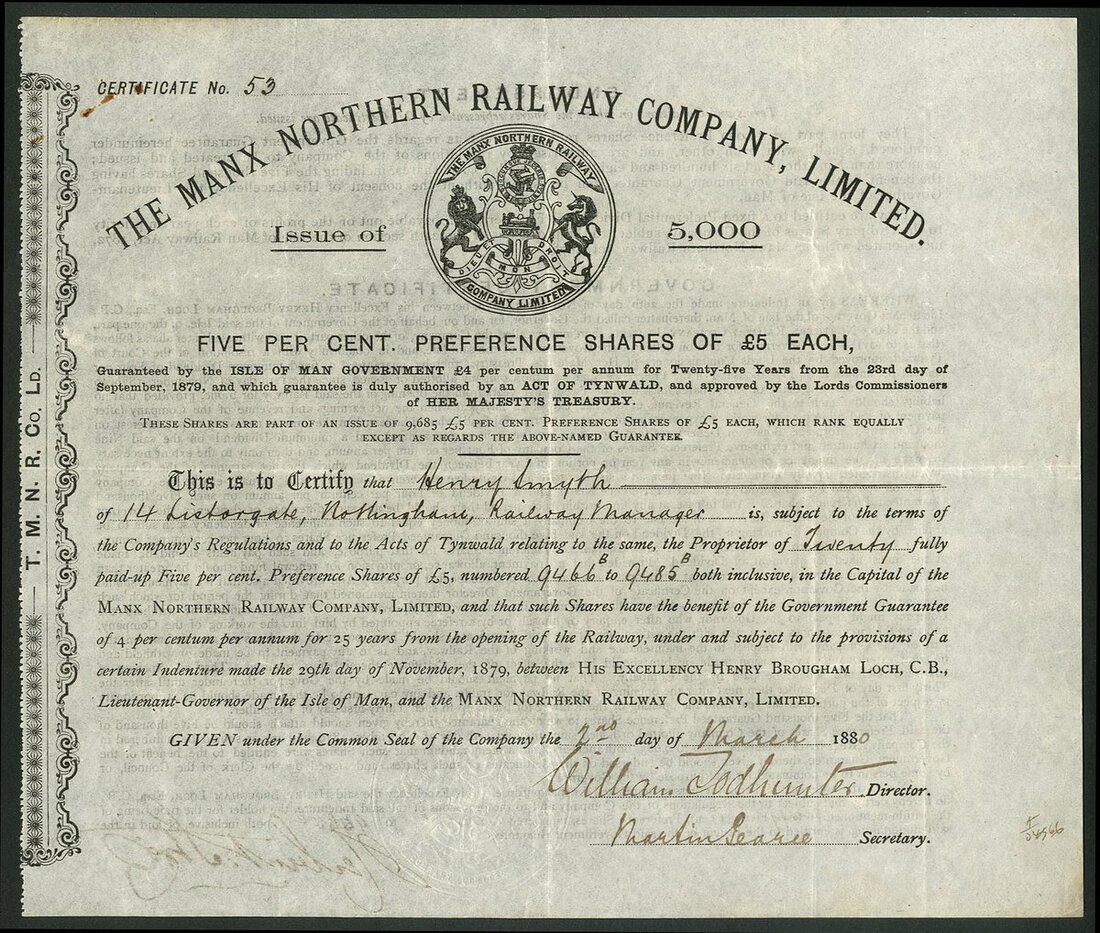 CERTIFICATE No. 53
THE MANX NORTHERN RAILWAY COMPANY, LIMITED.
THE MANX NORTHERN RAILWAY
Issue of 5,000
DIEU ET MON DROIT
COMPANY LIMITED
FIVE PER CENT. PREFERENCE SHARES OF £5 EACH,
Guaranteed by the ISLE OF MAN GOVERNMENT £4 per centum per annum for Twenty-five Years from the 23rd day of
September, 1879, and which guarantee is duly authorised by an ACT OF TYNWALD, and approved by the Lords Commissioners
of HER MAJESTY'S TREASURY.
THESE SHARES ARE PART OF AN ISSUE OF 9,685 £5 PER CENT. PREFERENCE SHARES OF £5 EACH, WHICH RANK EQUALLY
EXCEPT AS REGARDS THE ABOVE-NAMED GUARANTEE.
This is to Certify that Henry Smyth
of 14 Listergate, Nottingham, Railway Manager is, subject to the terms of
the Company's Regulations and to the Acts of Tynwald relating to the same, the Proprietor of Twenty fully
paid-up Five per cent. Preference Shares of £5, numbered 9466B to 9485B both inclusive, in the Capital of the
MANX NORTHERN RAILWAY COMPANY, LIMITED, and that such Shares have the benefit of the Government Guarantee
of 4 per centum per annum for 25 years from the opening of the Railway, under and subject to the provisions of a
certain Indenture made the 29th day of November, 1879, between HIS EXCELLENCY HENRY BROUGHAM LOCH, C.B.,
Lieutenant-Governor of the Isle of Man, and the MANX NORTHERN RAILWAY COMPANY, LIMITED.
GIVEN under the Common Seal of the Company the 2nd day of March 1880
William Todhunter Director.
Martin Pearce Secretary.
T. M. N. R. Co. LD.